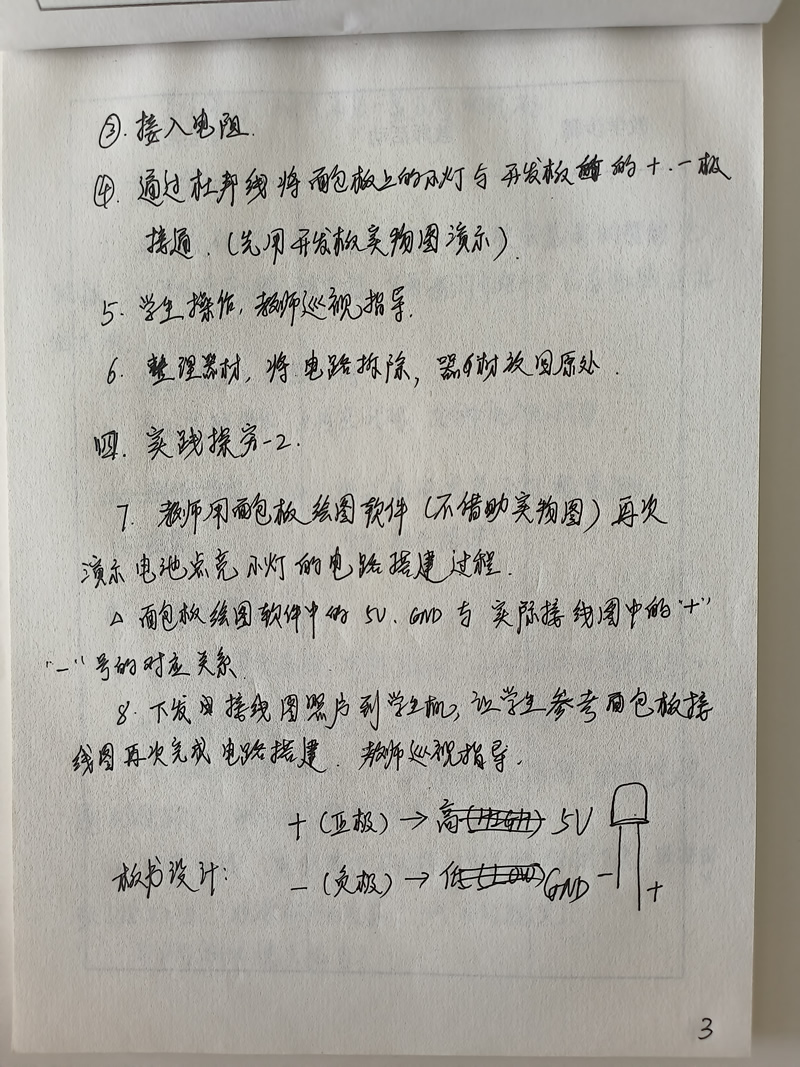 ③. 接入电阻.
④. 通过杜邦线将面包板上的小灯与开发板的+.一极
接通.(先用开发板实物图演示)
5. 学生操作,教师巡视指导.
6. 整理器材,将电路拆除,器材放回原处.
四. 实践探究-2.
7. 教师用面包板绘图软件(不借助实物图)再次
演示电池点亮小灯的电路搭建过程.
△ 面包板绘图软件中的5V.GND与实际接线图中的"+"
"-"号的对应关系.
8. 下发接线图照片到学生机,让学生参考面包板接
线图再次完成电路搭建. 教师巡视指导.
+(正极)→高(HIGH) 5V
板书设计: -(负极)→低(LOW) GND - +
3